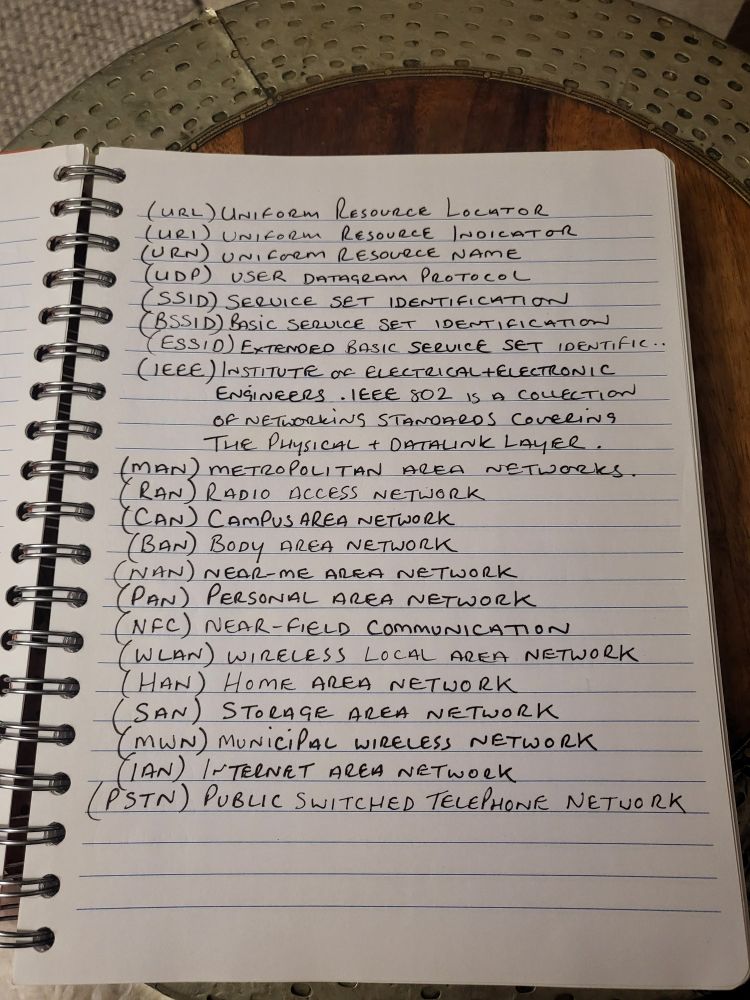 (URL) UNIFORM RESOURCE LOCATOR
(URI) UNIFORM RESOURCE INDICATOR
(URN) UNIFORM RESOURCE NAME
(UDP) USER DATAGRAM PROTOCOL
(SSID) SERVICE SET IDENTIFICATION
(BSSID) BASIC SERVICE SET IDENTIFICATION
(ESSID) EXTENDED BASIC SERVICE SET IDENTIFIC..
(IEEE) INSTITUTE OF ELECTRICAL + ELECTRONIC
ENGINEERS . IEEE 802 IS A COLLECTION
OF NETWORKING STANDARDS COVERING
THE PHYSICAL + DATALINK LAYER .
(MAN) METROPOLITAN AREA NETWORKS.
(RAN) RADIO ACCESS NETWORK
(CAN) CAMPUS AREA NETWORK
(BAN) BODY AREA NETWORK
(NAN) NEAR-ME AREA NETWORK
(PAN) PERSONAL AREA NETWORK
(NFC) NEAR-FIELD COMMUNICATION
(WLAN) WIRELESS LOCAL AREA NETWORK
(HAN) HOME AREA NETWORK
(SAN) STORAGE AREA NETWORK
(MWN) MUNICIPAL WIRELESS NETWORK
(IAN) INTERNET AREA NETWORK
(PSTN) PUBLIC SWITCHED TELEPHONE NETWORK